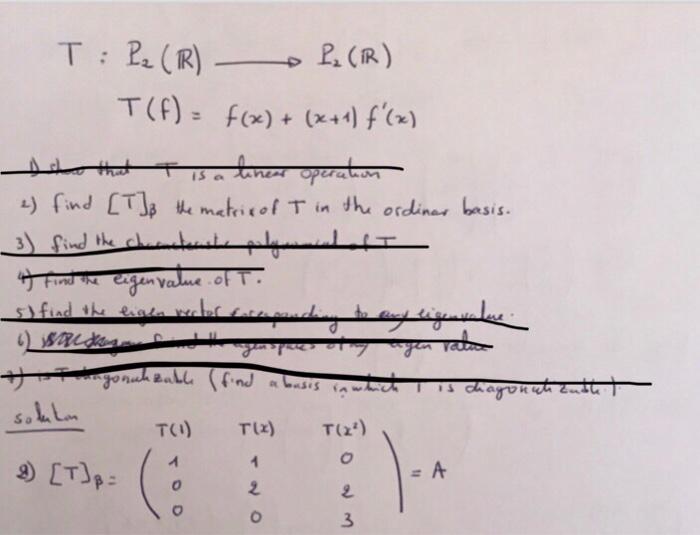 T : P₂(ℝ) ⟶ P₂(ℝ)
T(f) = f(x) + (x+1) f'(x)
1) show that T is a linear operation
2) find [T]β the matrix of T in the ordinar basis.
3) find the characteristic polynomial of T
4) find the eigenvalue of T.
5) find the eigen vector corresponding to any eigenvalue.
6) find the agenspaces of any eigen value
7) is T diagonalizable (find a basis in which T is diagonalizable).
solution
T(1) T(x) T(x²)
2) [T]β = ( 1 1 0
0 2 2
0 0 3 ) = A